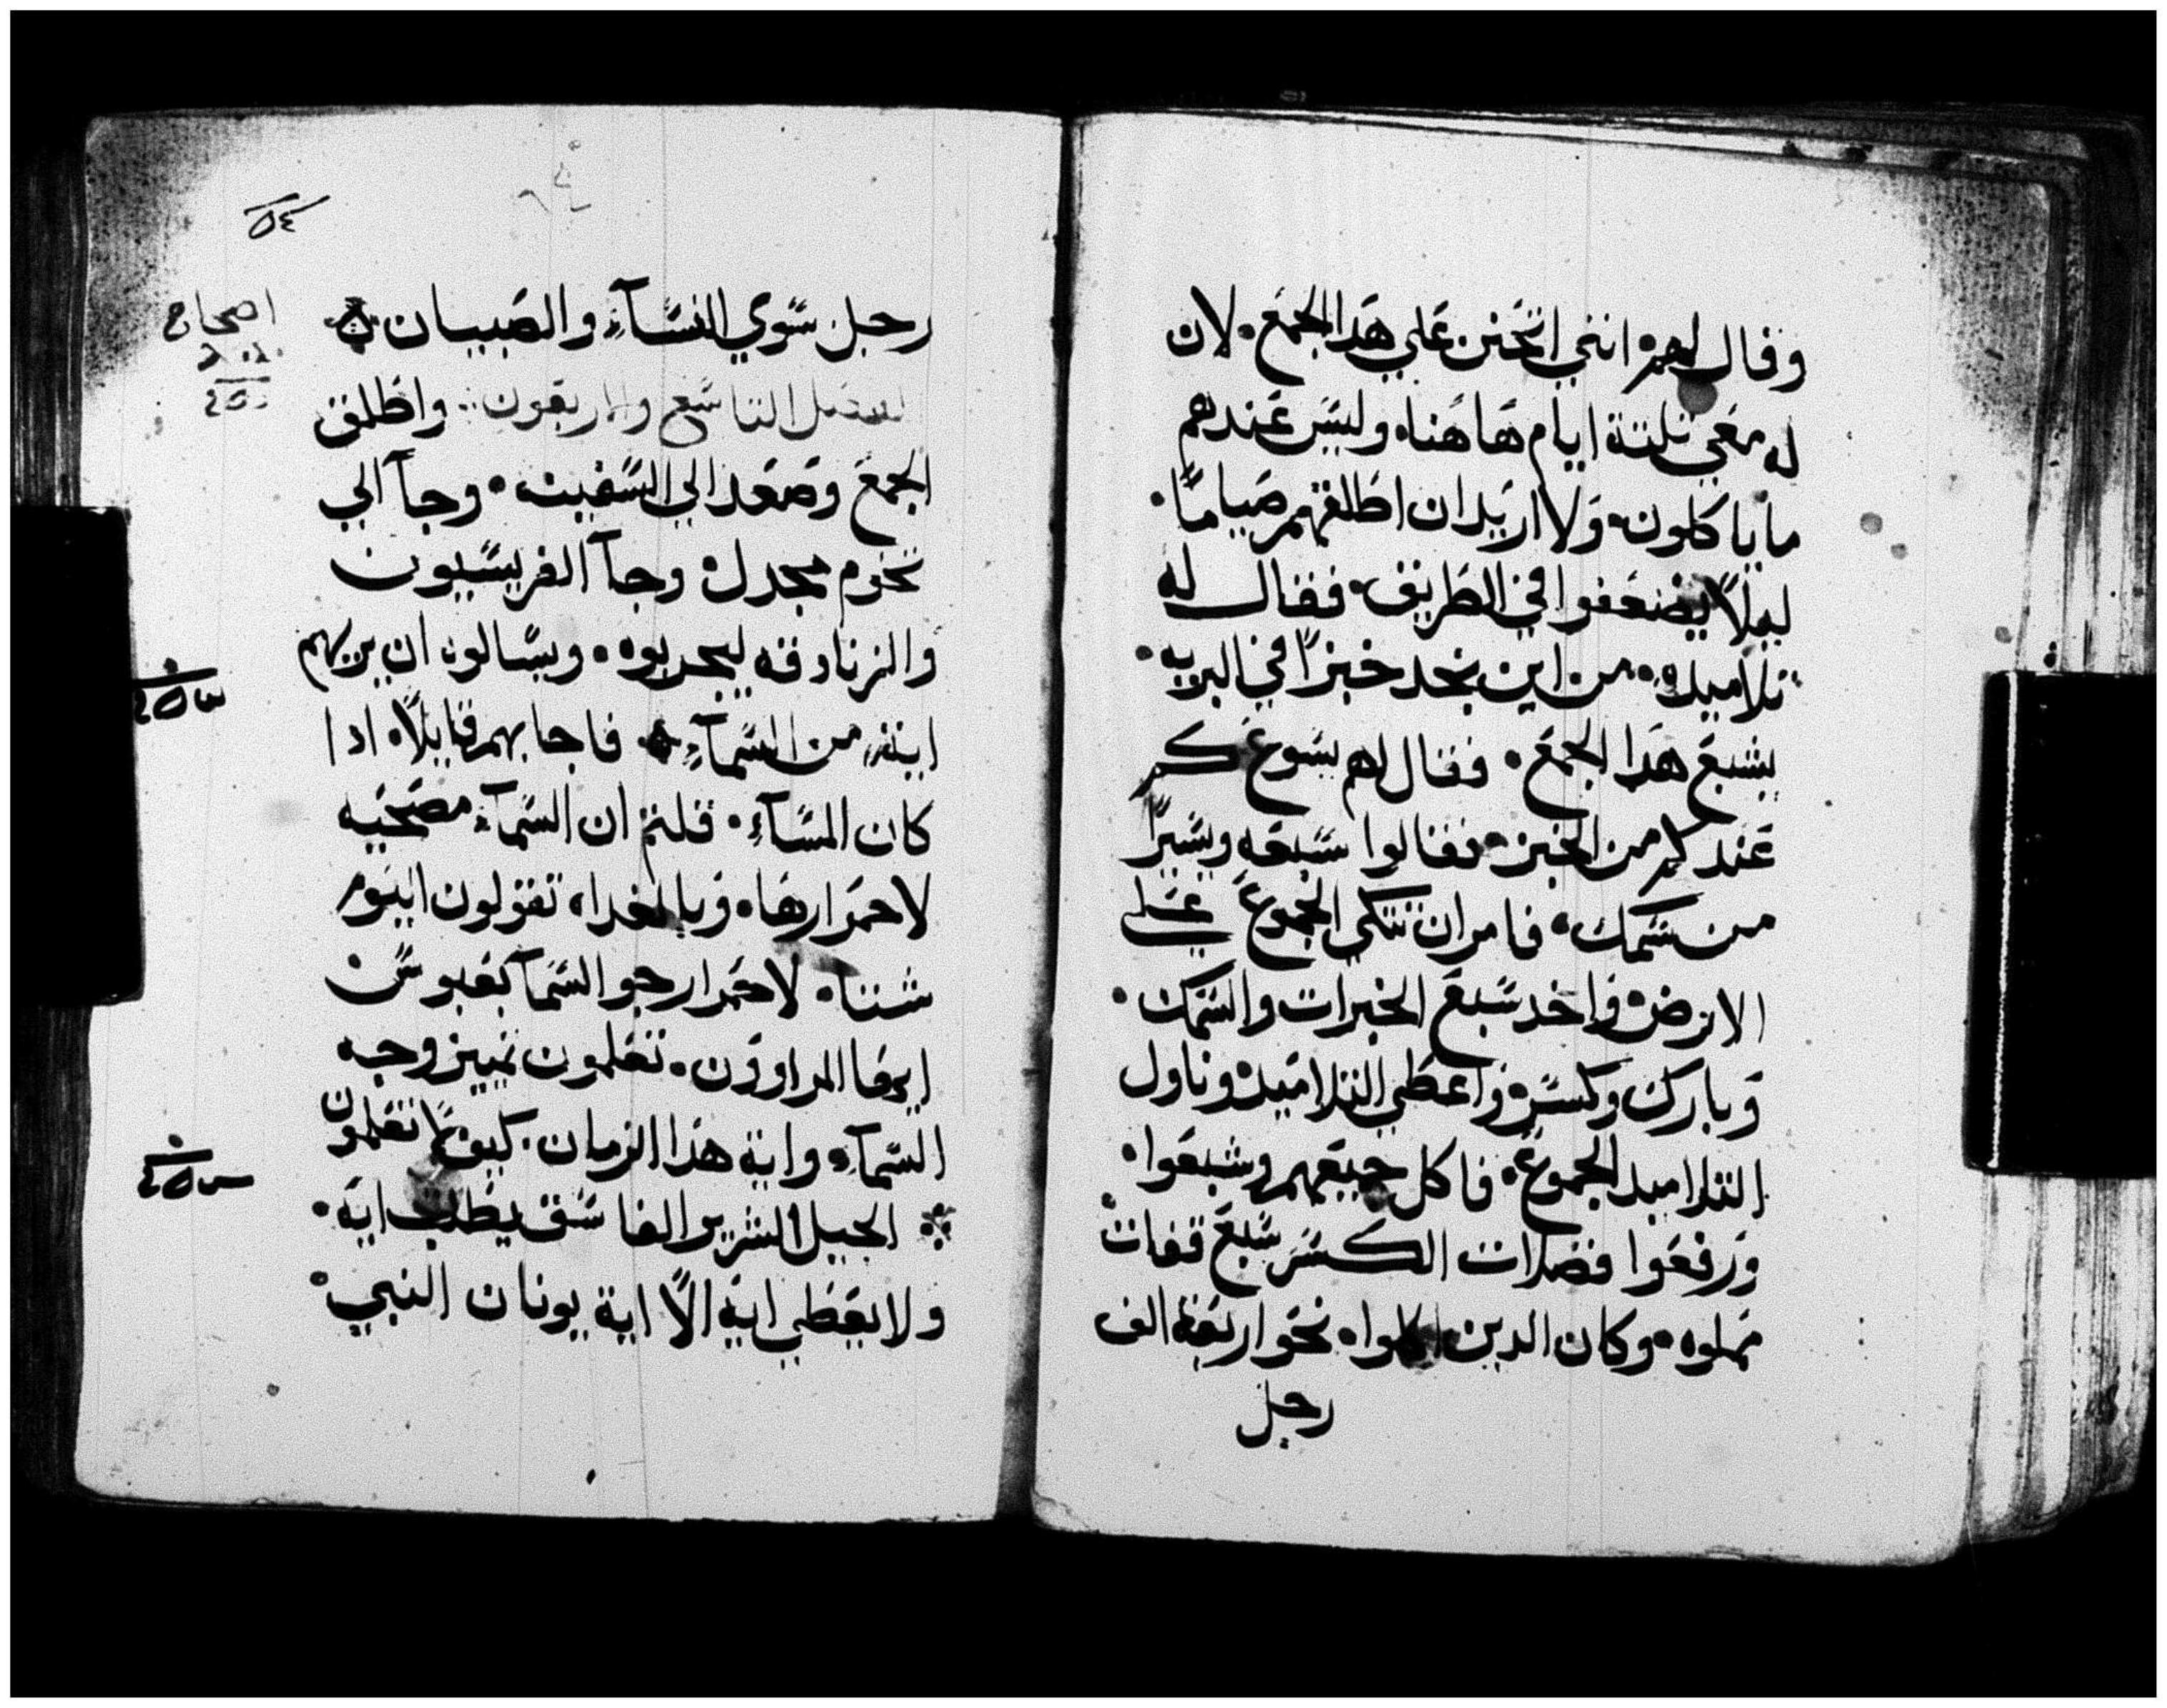 وقال لهم انني اتحنن علي هدا الجمع. لان
له معي تلتة ايام هاهنا. وليس عندهم
ما ياكلون. ولا اريد ان اطلقهم صياما.
ليلا يضعفوا في الطريق. فقال له
تلاميده. من اين نجد خبزا في البريه.
يشبع هدا الجمع. فقال لهم يسوع كم
عندكم من الخبز. فقالوا سبعه ويسيرا
من سمك. فامر ان تتكي الجموع علي
الارض. واخد سبع الخبزات والسمك.
وبارك وكسر. واعطي التلاميد. وناول
التلاميد الجموع. فاكل جميعهم وشبعوا.
ورفعوا فضلات الكسر سبع قفات
مملوه. وكان الدين اكلوا. نحو اربعة الف
رجل
٥٤
رجل سوي النسآء والصبيان
الفصل التاسع والاربعون. واطلق
الجمع وصعد الي السفينه. وجآ الي
تخوم مجدل. وجآ الفريسيون
والزنادقه ليجربوه. ويسالوه ان يريهم
ايه من السمآء. فاجابهم قايلا. ادا
كان المسآء. قلتم ان السمآء مصحيه
لاحمرارها. وبالغداه تقولون اليوم
شتا. لاحمرار جو السمآ بعبوس
ايها المراوون. تعلمون تمييز وجه
السمآء واية هدا الزمان. كيف لا تعلمون
الجيل الشرير الفاسق يطلب ايه.
ولا يعطي ايه الا اية يونان النبي.
اصحاح